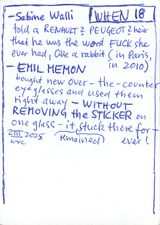 WHEN 18
- Sabine Walli
told a RENAULT & PEUGEOT heir
that he was the worst FUCK she
ever had, like a rabbit (in Paris,
in 2010)
- EMIL MEMON
bought new over-the-counter
eyeglasses and used them
right away - WITHOUT
REMOVING the STICKER on
one glass - it stuck there for
(remained) ever!
VIII 2025
NYC